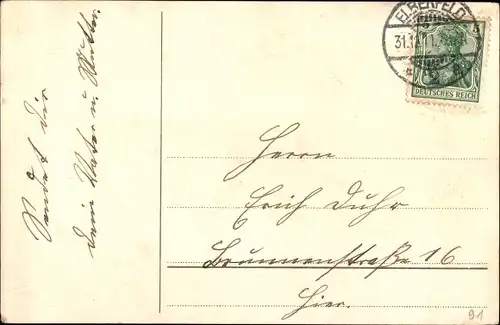 Sendet Dir
Dein Vater u. Mutter.
ELBERFELD
31.12.11.
DEUTSCHES REICH
Herrn
Erich Duhr
Brunnenstraße 16
Hier.
91